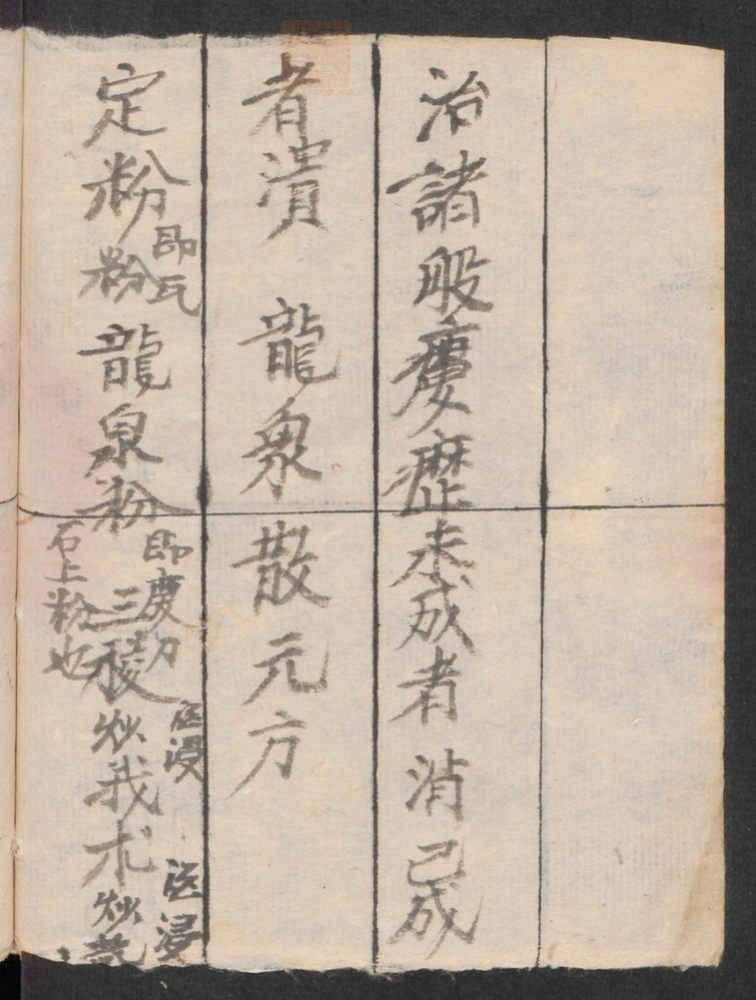 治諸般瘻癧未成者消已成
者潰 龍泉散元方
定粉即瓦粉龍泉粉即磨刀石上粉也三稜浸炒我朮浸炒